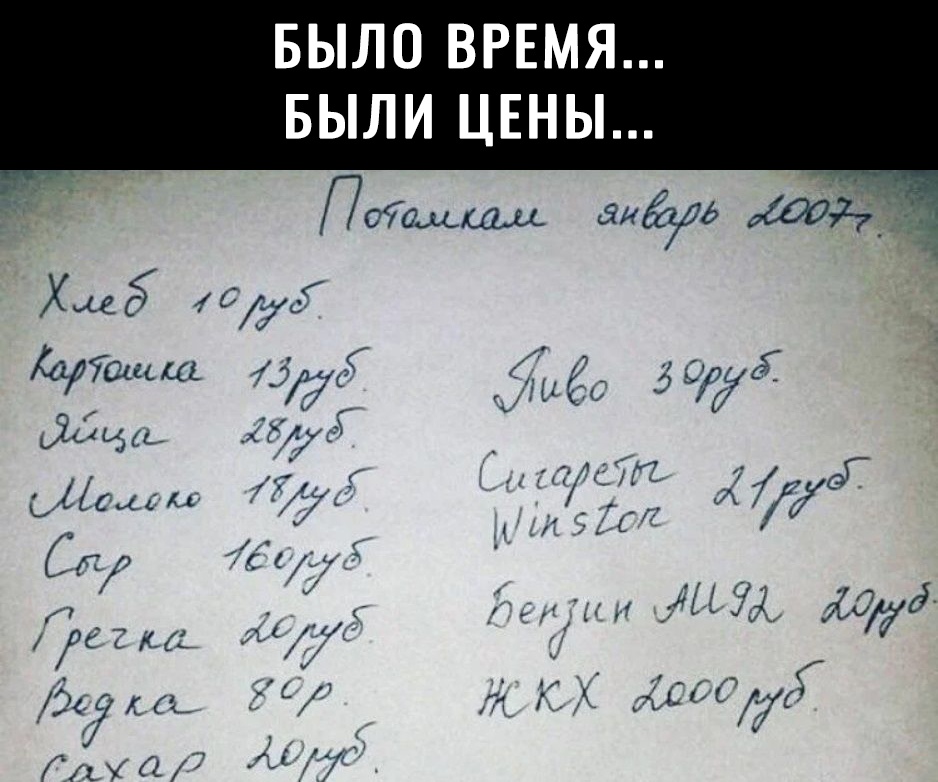 БЫЛО ВРЕМЯ...
БЫЛИ ЦЕНЫ...
Потомкам январь 2007г.
Хлеб 10 руб.
Картошка 13 руб.
Яйца 28 руб.
Молоко 18 руб.
Сыр 160 руб.
Гречка 20 руб.
Водка 80 р.
Сахар 20 руб.
Пиво 30 руб.
Сигареты
Winston 21 руб.
Бензин АИ92 20 руб.
ЖКХ 2000 руб.